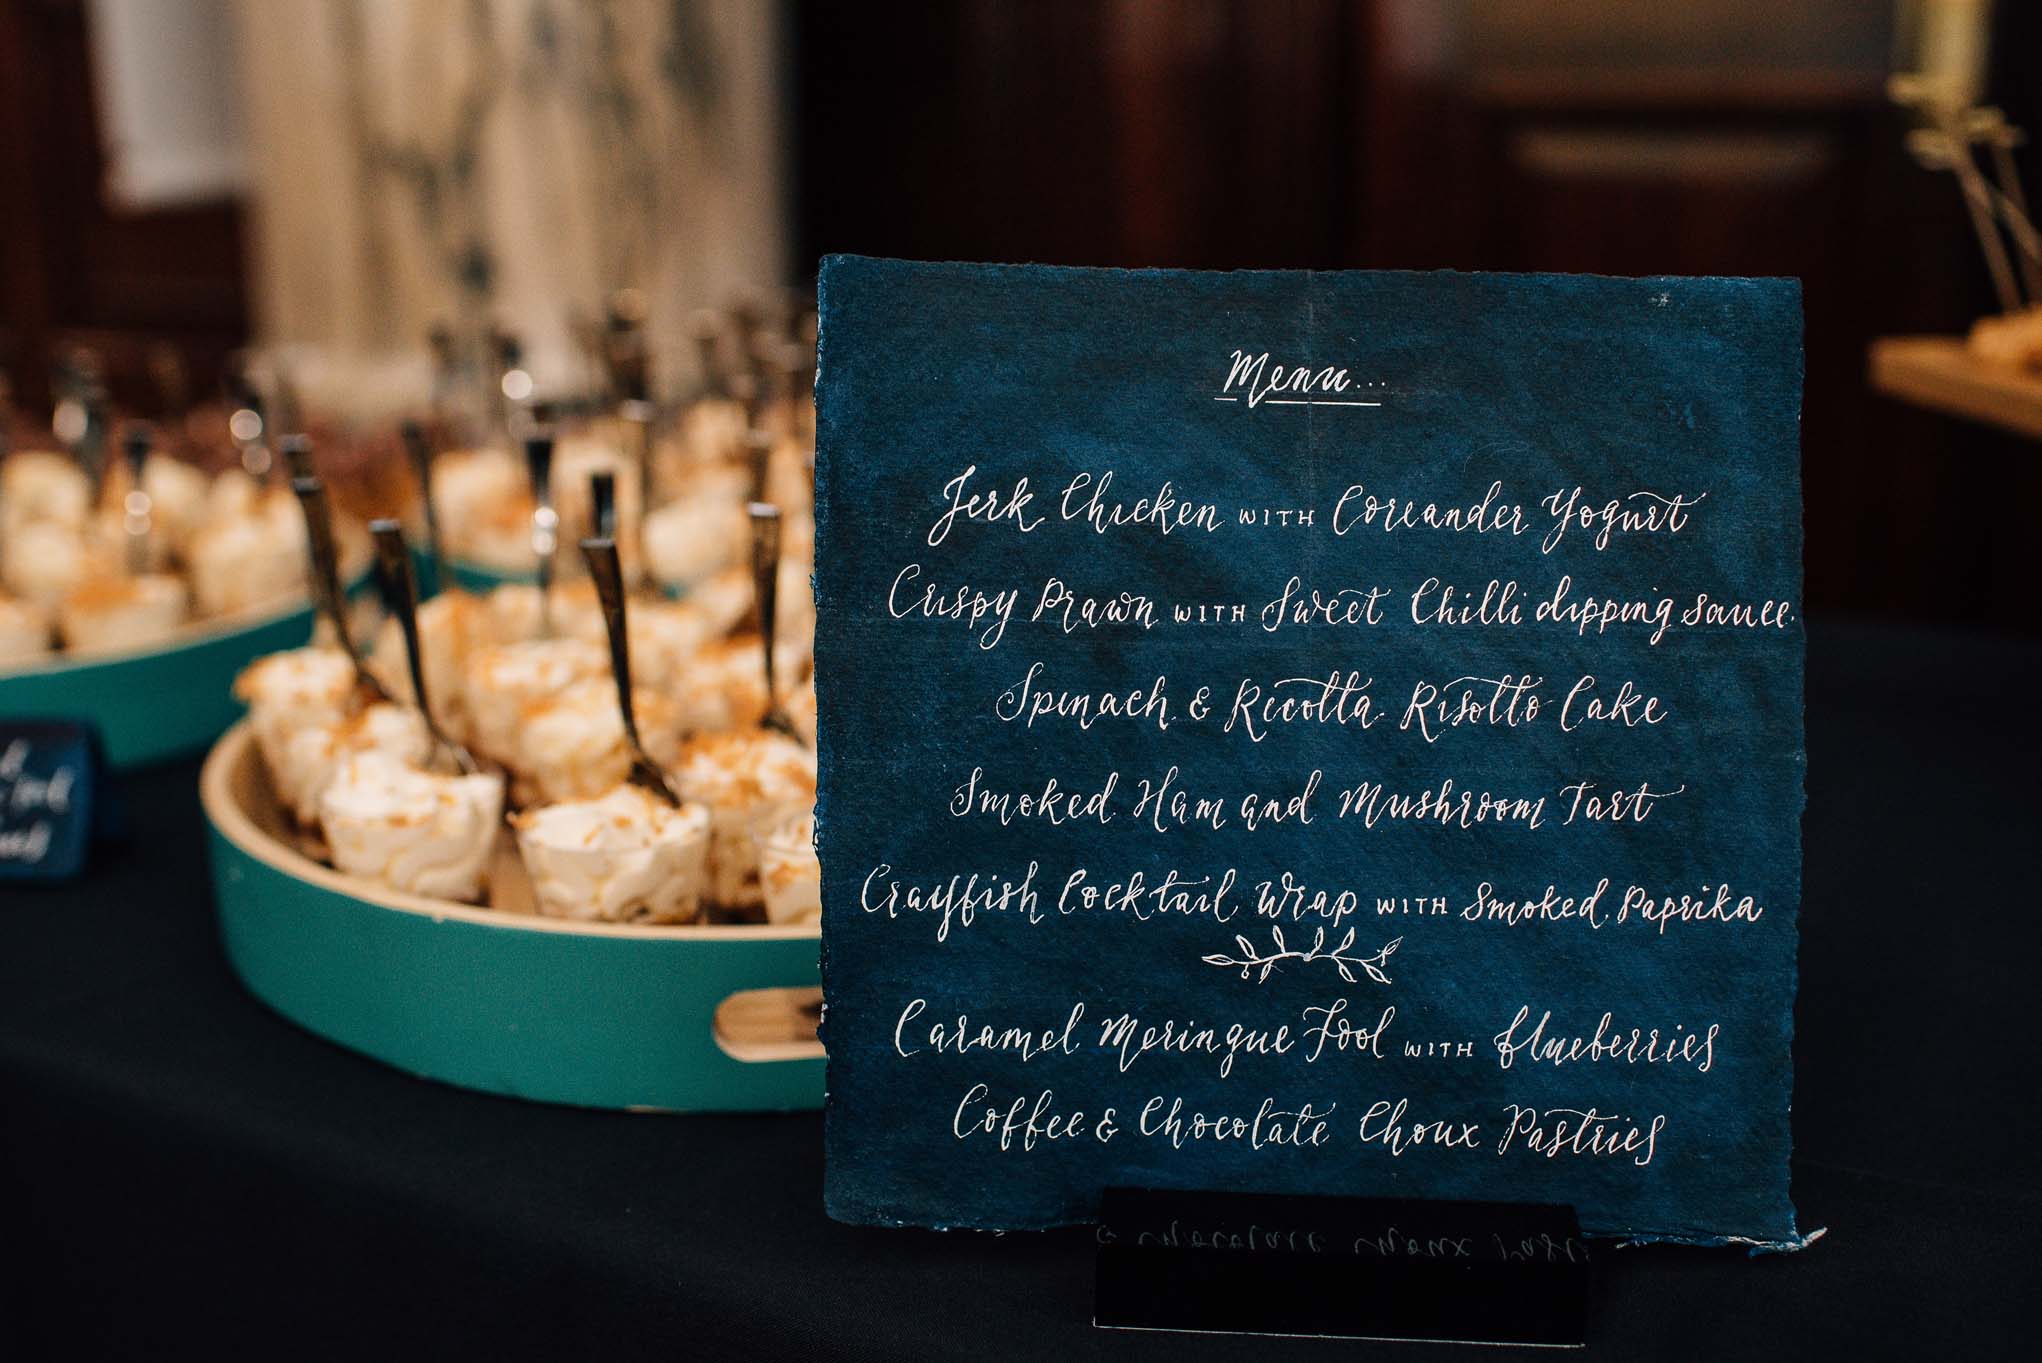 Menu...
Jerk Chicken WITH Coreander Yogurt
Crispy Prawn WITH Sweet Chilli dipping sauce.
Spinach & Ricotta Risotto Cake
Smoked Ham and Mushroom Tart
Crayfish Cocktail Wrap WITH Smoked Paprika
Caramel Meringue Fool WITH Blueberries
Coffee & Chocolate Choux Pastries